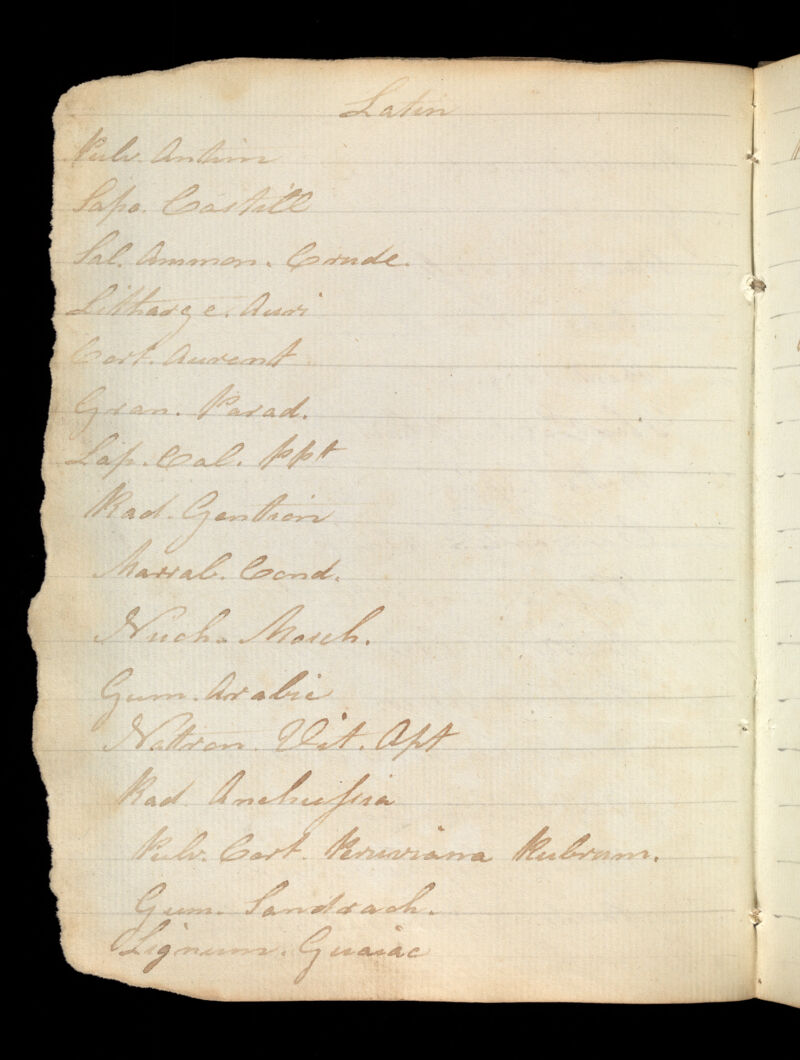 Latin
Pulv. Antim
Sapo. Castill
Sal. Ammon. Crude.
Litharge. Auri
Cort. Aurent
Gran. Parad.
Lap. Cal. ppt
Rad. Gention
Marrab. Cond.
Nuch. Mosch.
Gum. Arabic
Nattron. Vit. Apt
Rad Anchusia
Pulv. Cort. Peruviana Rubrum.
Gum. Sandrach.
Lignum. Guaiac